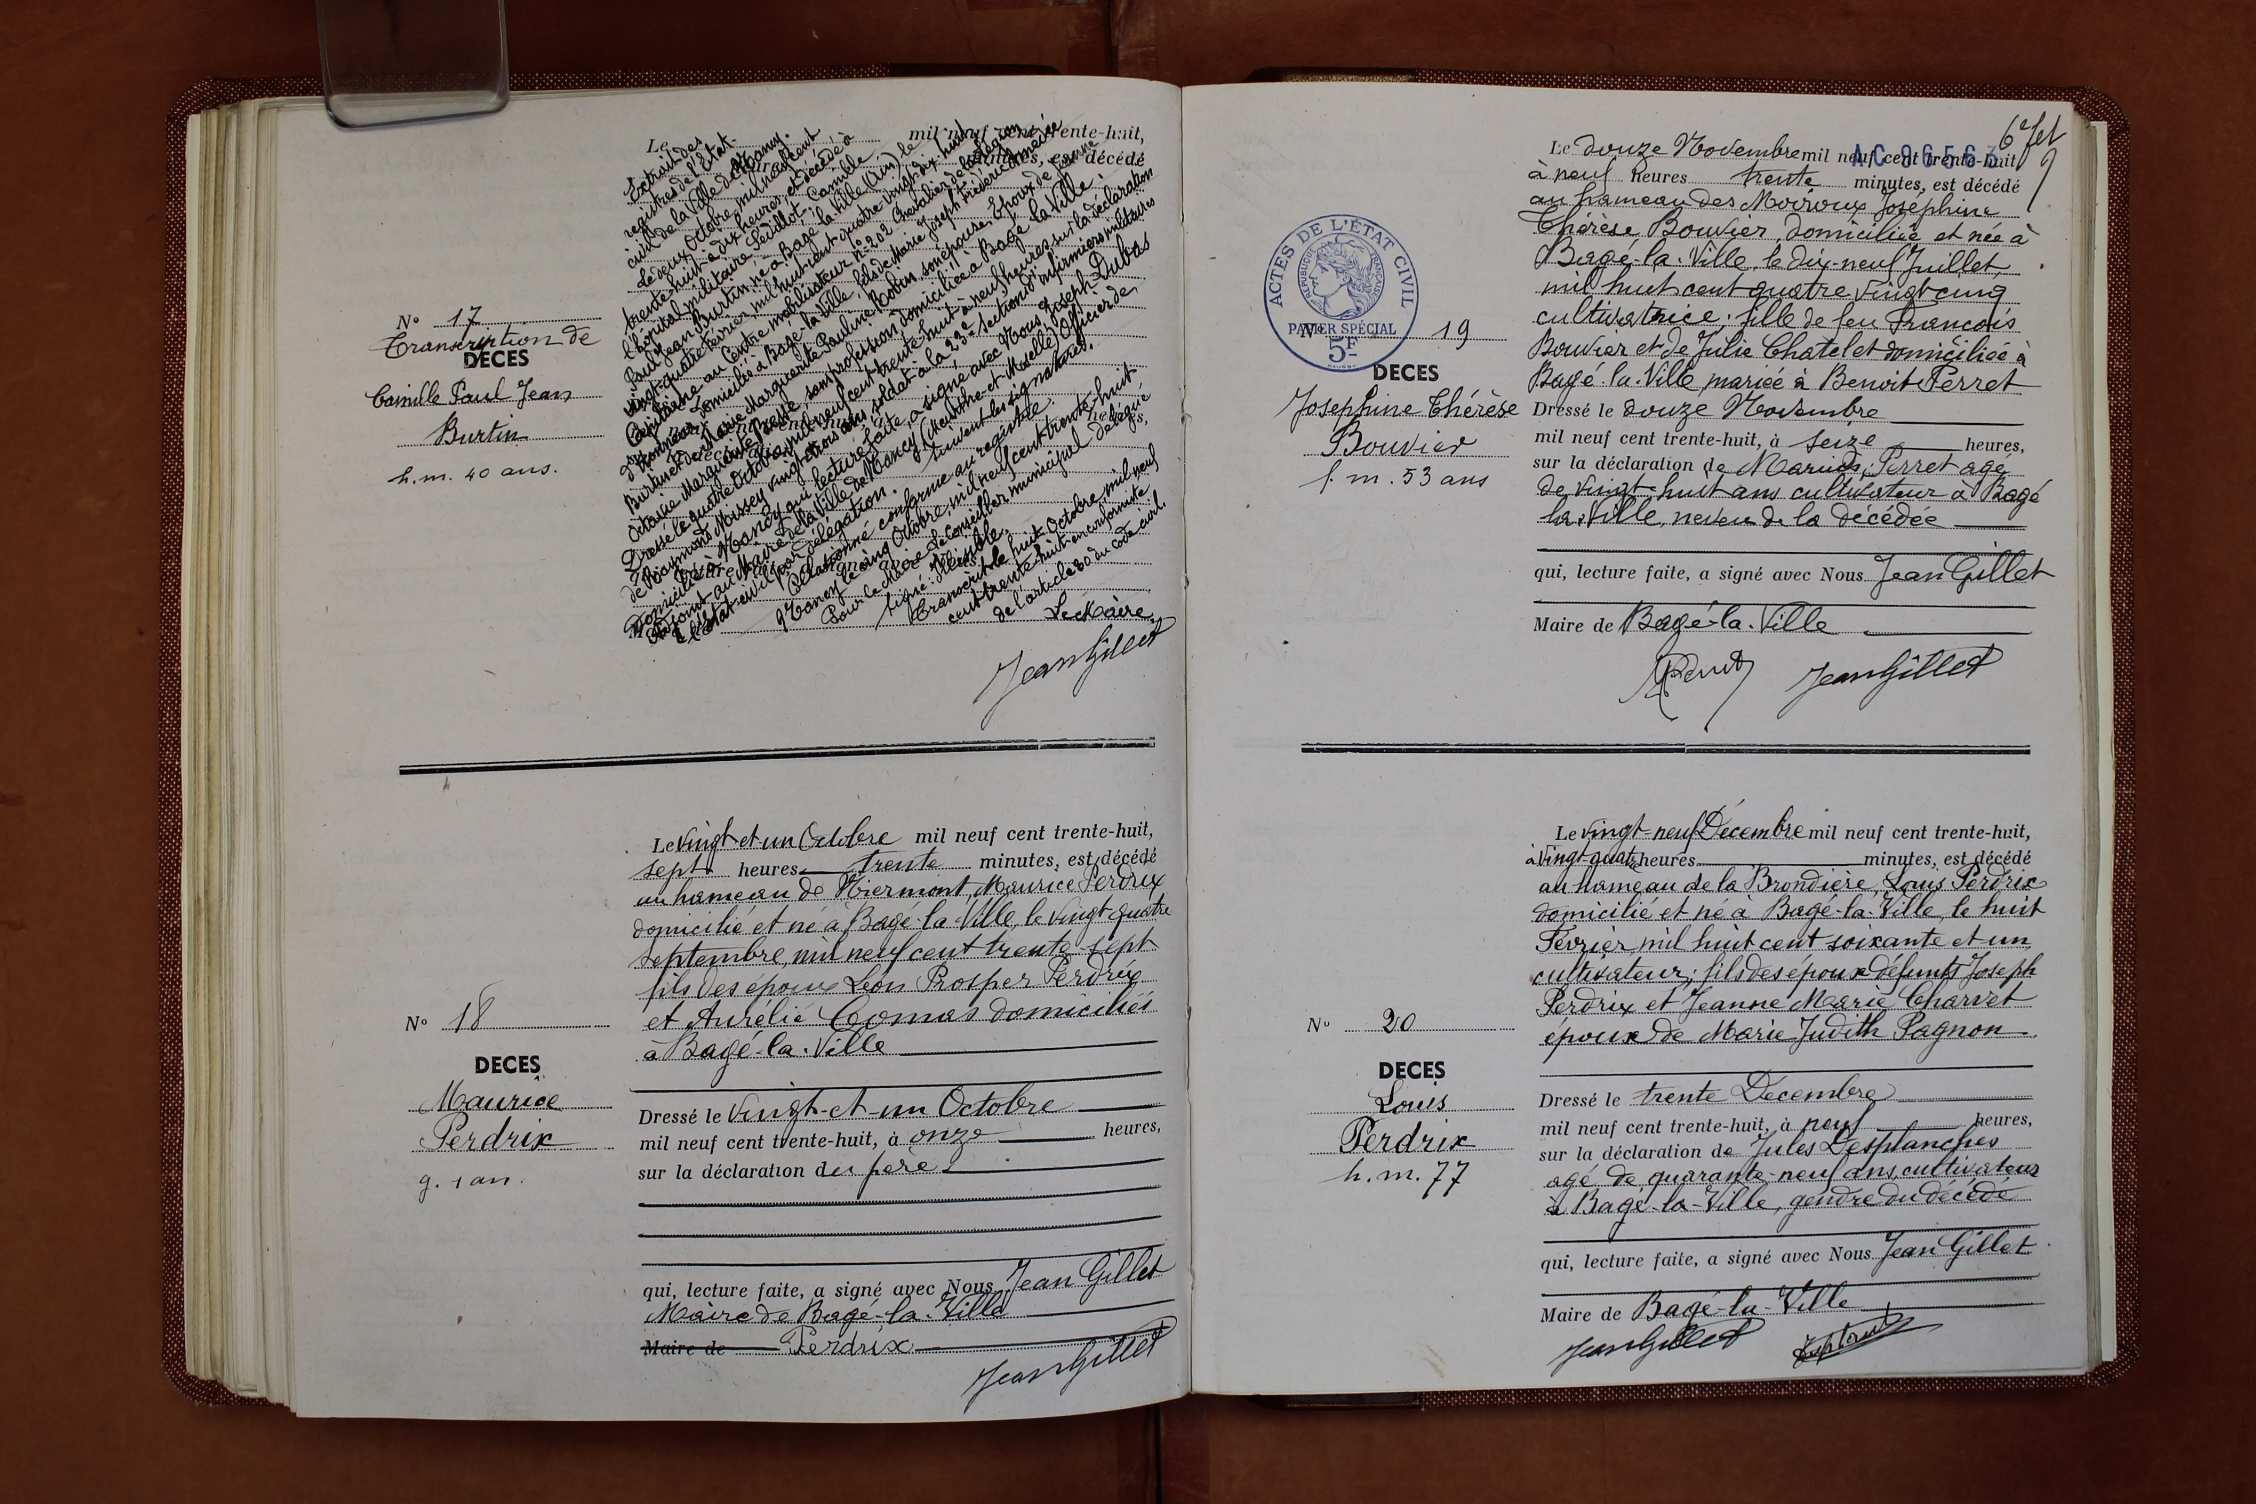 N° 17
Transcription de
DÉCES
Camille Paul Jean
Burtin
h. m. 40 ans.
Le mil neuf cent trente-huit,
minutes, est décédé
Extrait des
registres de l'État
civil de la Ville de Nancy.
Le deux Octobre mil neuf cent
trente huit à dix heures, est décédé à
l'hôpital militaire Sédillot, Camille
Paul Jean Burtin, né à Bagé la Ville (Ain) le
vingt quatre Février mil huit cent quatre vingt dix huit
Capitaine au Centre mobilisateur n° 202 Chevalier de la Légion
d'honneur, domicilié à Bagé-la-Ville, fils de Marie Joseph Frédéric Amédée
Burtin et de Marie Marguerite Pauline Robin son épouse. Époux de Jeanne
Octavie Marguerite sans profession domiciliée à Bagé la Ville.
Dressé le quatre Octobre mil neuf cent trente huit à neuf heures, sur la déclaration
de Raymond Moissey vingt-trois ans, soldat à la 23e Section d'infirmiers militaires
domicilié à Nancy qui, lecture faite, a signé avec Nous, Joseph Dubas
Adjoint au Maire de la Ville de Nancy (Meurthe-et-Moselle) Officier de
l'État civil par délégation. Suivent les signatures.
Collationné conforme au registre.
Nancy, le cinq Octobre, mil neuf cent trente huit
Pour le Maire Le conseiller municipal délégué,
Signé: Illisible
Transcrit le huit Octobre, mil neuf
cent trente huit en conformité
de l'article 80 du code civil.
Le Maire
Jean Gillet
N° 18
DECES
Maurice
Perdrix
g. 1 an.
Le vingt et un Octobre mil neuf cent trente-huit,
sept heures trente minutes, est décédé
au hameau de Niermont, Maurice Perdrix
domicilié et né à Bagé-la-Ville, le vingt quatre
septembre, mil neuf cent trente-sept
fils des époux Léon Prosper Perdrix
et Aurélie Comas domiciliés
à Bagé-la-Ville
Dressé le vingt-et-un Octobre
mil neuf cent trente-huit, à onze heures,
sur la déclaration du père
qui, lecture faite, a signé avec Nous Jean Gillet
Maire de Bagé-la-Ville
Maire de Perdrix
Jean Gillet
6e fet
AC 96563
ACTES DE L'ÉTAT CIVIL
RÉPUBLIQUE FRANÇAISE
PAPIER SPÉCIAL
5F
N° 19
DECES
Joséphine Thérèse
Bouvier
f. m. 53 ans
Le douze Novembre mil neuf cent trente-huit,
à neuf heures trente minutes, est décédé
au hameau des Moiroux Joséphine
Thérèse Bouvier, domiciliée et née à
Bagé-la-Ville, le dix-neuf Juillet,
mil huit cent quatre vingt cinq
cultivatrice; fille de feu François
Bouvier et de Julie Chatelet domiciliée à
Bagé-la-Ville, mariée à Benoit Perret
Dressé le douze Novembre
mil neuf cent trente-huit, à seize heures,
sur la déclaration de Marius Perret agé
de vingt-huit ans cultivateur à Bagé
la-Ville, neveu de la décédée
qui, lecture faite, a signé avec Nous Jean Gillet
Maire de Bagé-la-Ville
Jean Gillet
N° 20
DECES
Louis
Perdrix
h. m. 77
Le vingt-neuf Décembre mil neuf cent trente-huit,
à vingt-quatre heures minutes, est décédé
au hameau de la Brondière, Louis Perdrix
domicilié et né à Bagé-la-Ville, le huit
Février, mil huit cent soixante et un,
cultivateur; fils des époux défunts Joseph
Perdrix et Jeanne Marie Charvet
époux de Marie Judith Pagnon
Dressé le trente Décembre
mil neuf cent trente-huit, à neuf heures,
sur la déclaration de Jules Desplanches
agé de quarante-neuf ans, cultivateur
à Bagé-la-Ville, gendre du décédé
qui, lecture faite, a signé avec Nous Jean Gillet
Maire de Bagé-la-Ville
Jean Gillet